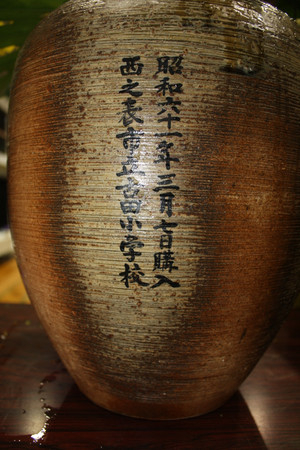 昭和六十一年三月七日購入
西之表市立古田小学校